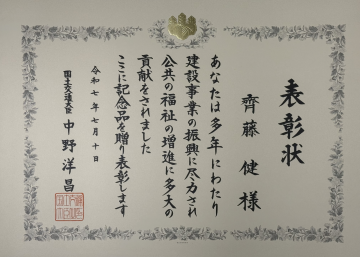 表彰状
齊藤健様
あなたは多年にわたり
建設事業の振興に尽力され
公共の福祉の増進に多大の
貢献をされました
ここに記念品を贈り表彰します
令和七年七月十日
国土交通大臣 中野洋昌